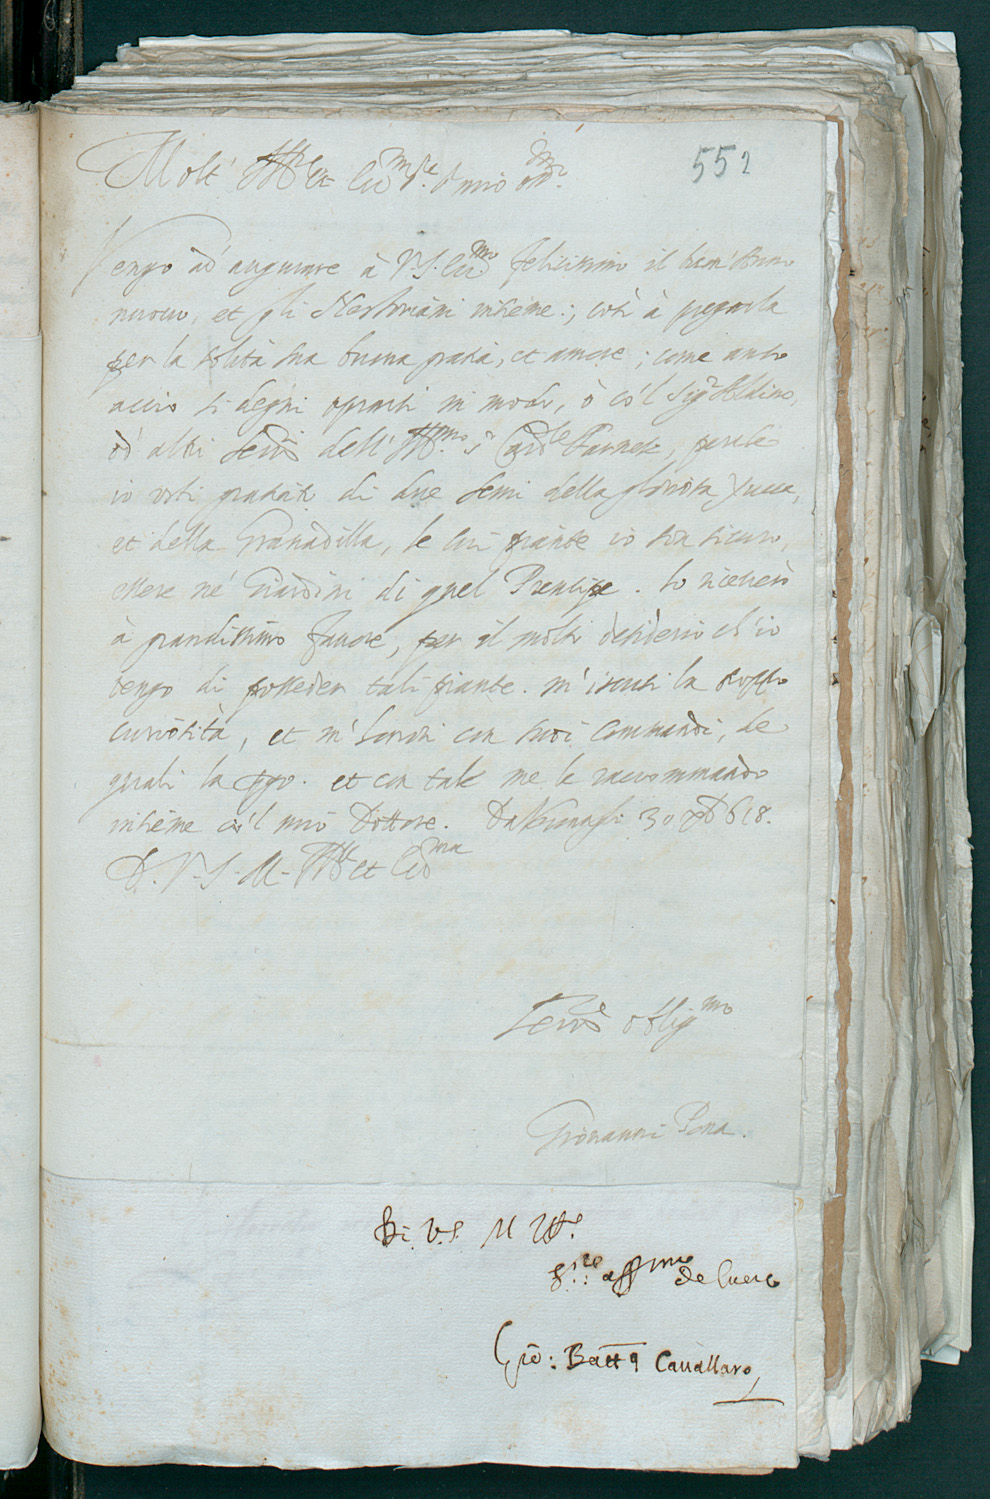 552
Molt' Ill.re et Ecc.mo S.re P.ron mio oss.mo
Vengo ad augurare à V.S. Ecc.ma felicissimo il Anno
nuouo, et gli insieme; così à pregarla
per la solita sua buona gratia, et amore; come anco
acciò si degni oprarsi in modo, ò co'l Sig.r Aldino,
od altri Ser.ri dell' Ill.mo s.r Card.le Farnese, perche
io resti gratiato di due semi della gloriosa Yucca,
et della Granadilla, le cui piante io son sicuro,
essere ne' Giardini di quel Prencipe. Io riceuerò
à grandissimo fauore, per il molto desiderio ch'io
tengo di posseder tali piante. m'iscusi la troppo
curiosità, et m' honori con suoi Commandi, de
quali la pgo. et con tale me le raccommando
insieme co'l mio Dottore. Da Verona li 30 Xb 618.
D. V. S. M. Ill.re et Ecc.ma
Ser.re oblig.mo
Giouanni Pona.
Di V.S. M Ill.e
S.re aff.mo de Cuore
Gio: Batt.a Cauallaro